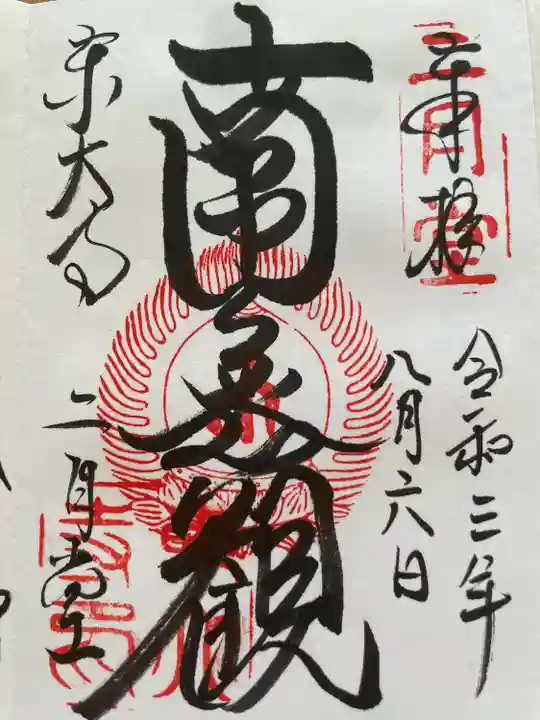 奉拝
令和三年
八月六日
南無観
東大寺
二月堂
二月堂